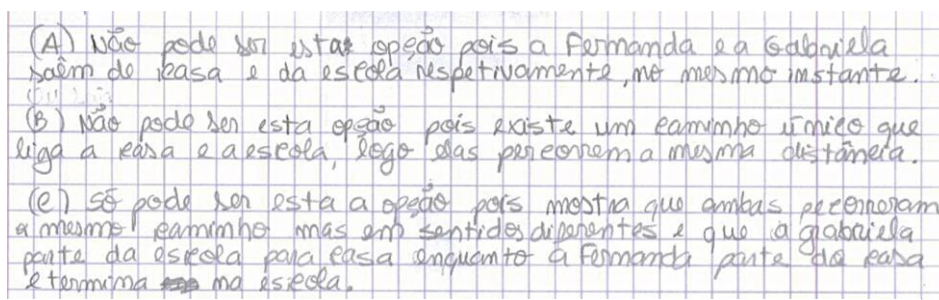 (A) Não pode ser esta opção pois a Fernanda e a Gabriela
saêm de casa e da escola respetivamente, no mesmo instante.
(B) Não pode ser esta opção pois existe um caminho único que
liga a casa e a escola, logo elas percorrem a mesma distância.
(C) só pode ser esta a opção pois mostra que ambas percorreram
o mesmo caminho mas em sentidos diferentes e que a gabriela
parte da escola para casa enquanto a Fernanda parte da casa
e termina na escola.